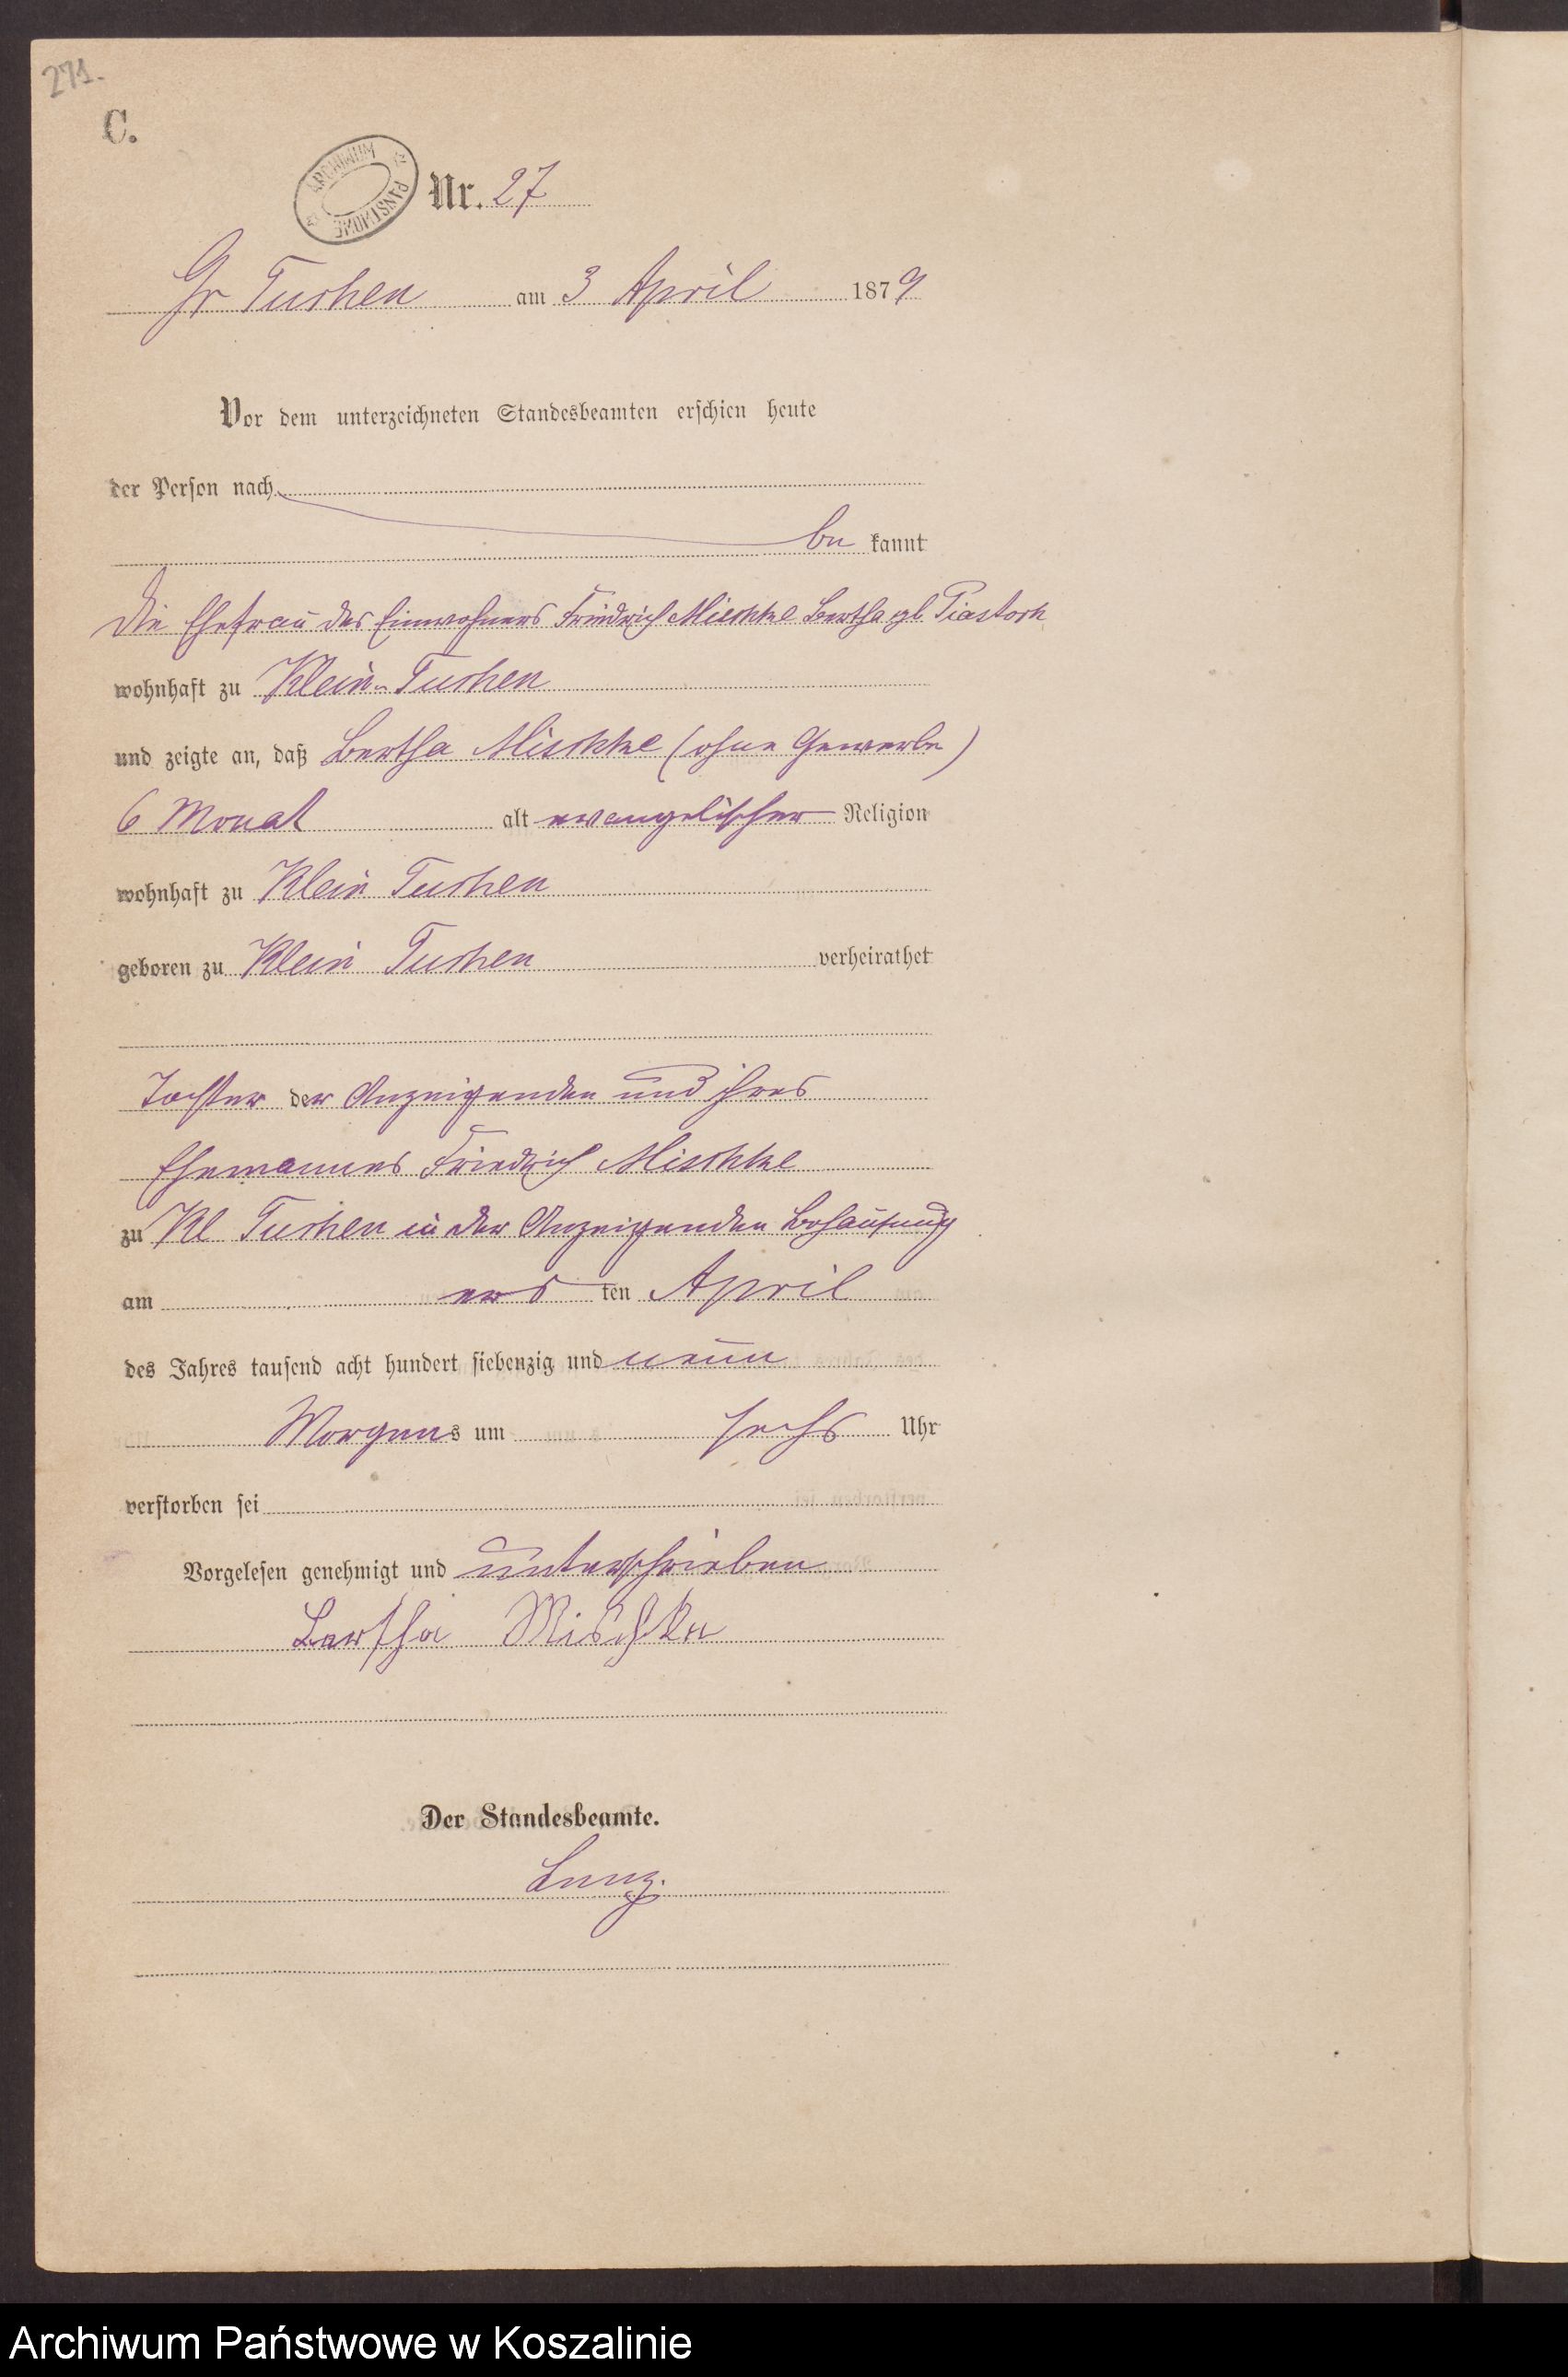 271.
C.
ARCHIWUM PAŃSTWOWE
Nr. 27
Gr Tuchen am 3 April 1879
Vor dem unterzeichneten Standesbeamten erschien heute
der Person nach
be kannt
die Ehefrau des Einwohners Friedrich Mischke Bertha gb.
wohnhaft zu Klein-Tuchen
und zeigte an, daß Bertha Mischke (ohne Gewerbe)
6 Monat alt evangelischer Religion
wohnhaft zu Klein Tuchen
geboren zu Klein Tuchen verheirathet
Tochter der Anzeigenden und ihres
Ehemannes Friedrich Mischke
zu Kl Tuchen in der Anzeigenden Behausung
am ers ten April
des Jahres tausend acht hundert siebenzig und neun
Morgens um sechs Uhr
verstorben sei
Vorgelesen genehmigt und unterschrieben
Bertha Mischke
Der Standesbeamte.
Archiwum Państwowe w Koszalinie